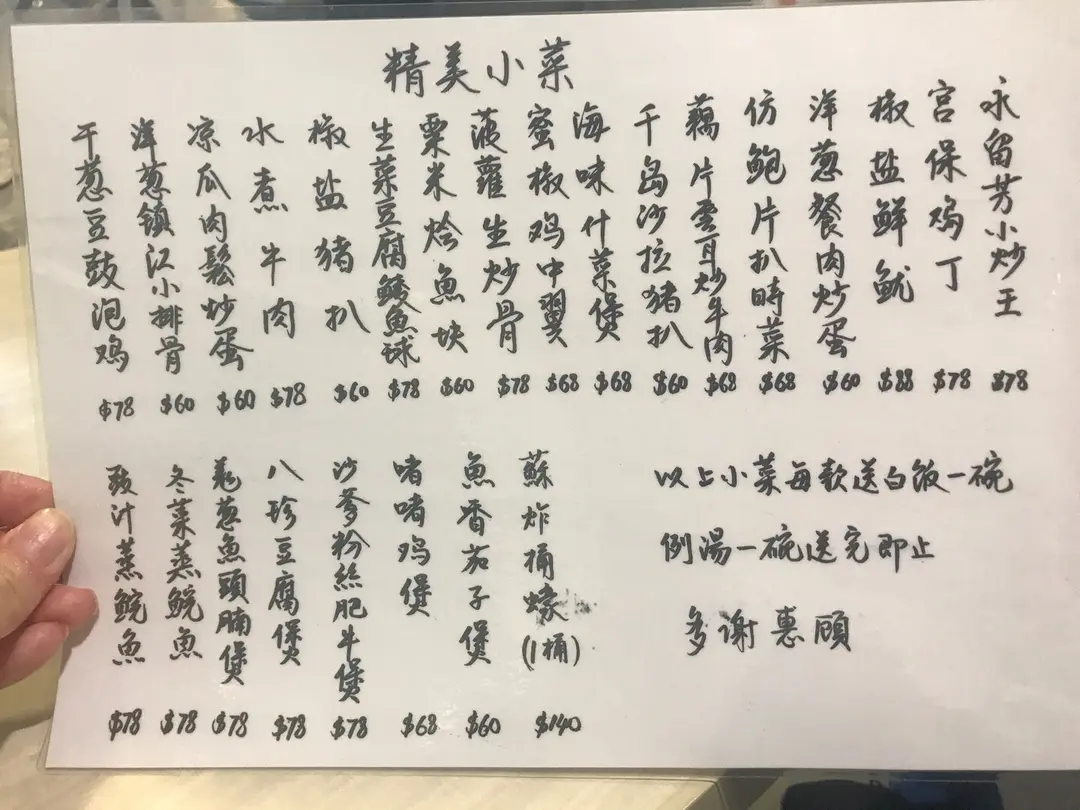 精美小菜
永留芳小炒王 $78
宫保鸡丁 $78
椒盐鲜鱿 $88
洋葱餐肉炒蛋 $60
仿鲍片扒時菜 $68
藕片雲耳炒牛肉 $68
千岛沙拉猪扒 $60
海味什菜煲 $68
蜜椒鸡中翼 $68
菠蘿生炒骨 $78
粟米烩魚块 $60
生菜豆腐鲮魚球 $78
椒盐猪扒 $60
水煮牛肉 $78
凉瓜肉鬆炒蛋 $60
洋葱镇江小排骨 $60
干葱豆鼓泡鸡 $78
以上小菜每款送白饭一碗
例湯一碗送完即止
多谢惠顾
蘇炸桶蠔(1桶) $140
魚香茄子煲 $60
啫啫鸡煲 $68
沙爹粉絲肥牛煲 $78
八珍豆腐煲 $78
羌葱魚頭腩煲 $78
冬菜蒸鲩魚 $78
豉汁蒸鲩魚 $78